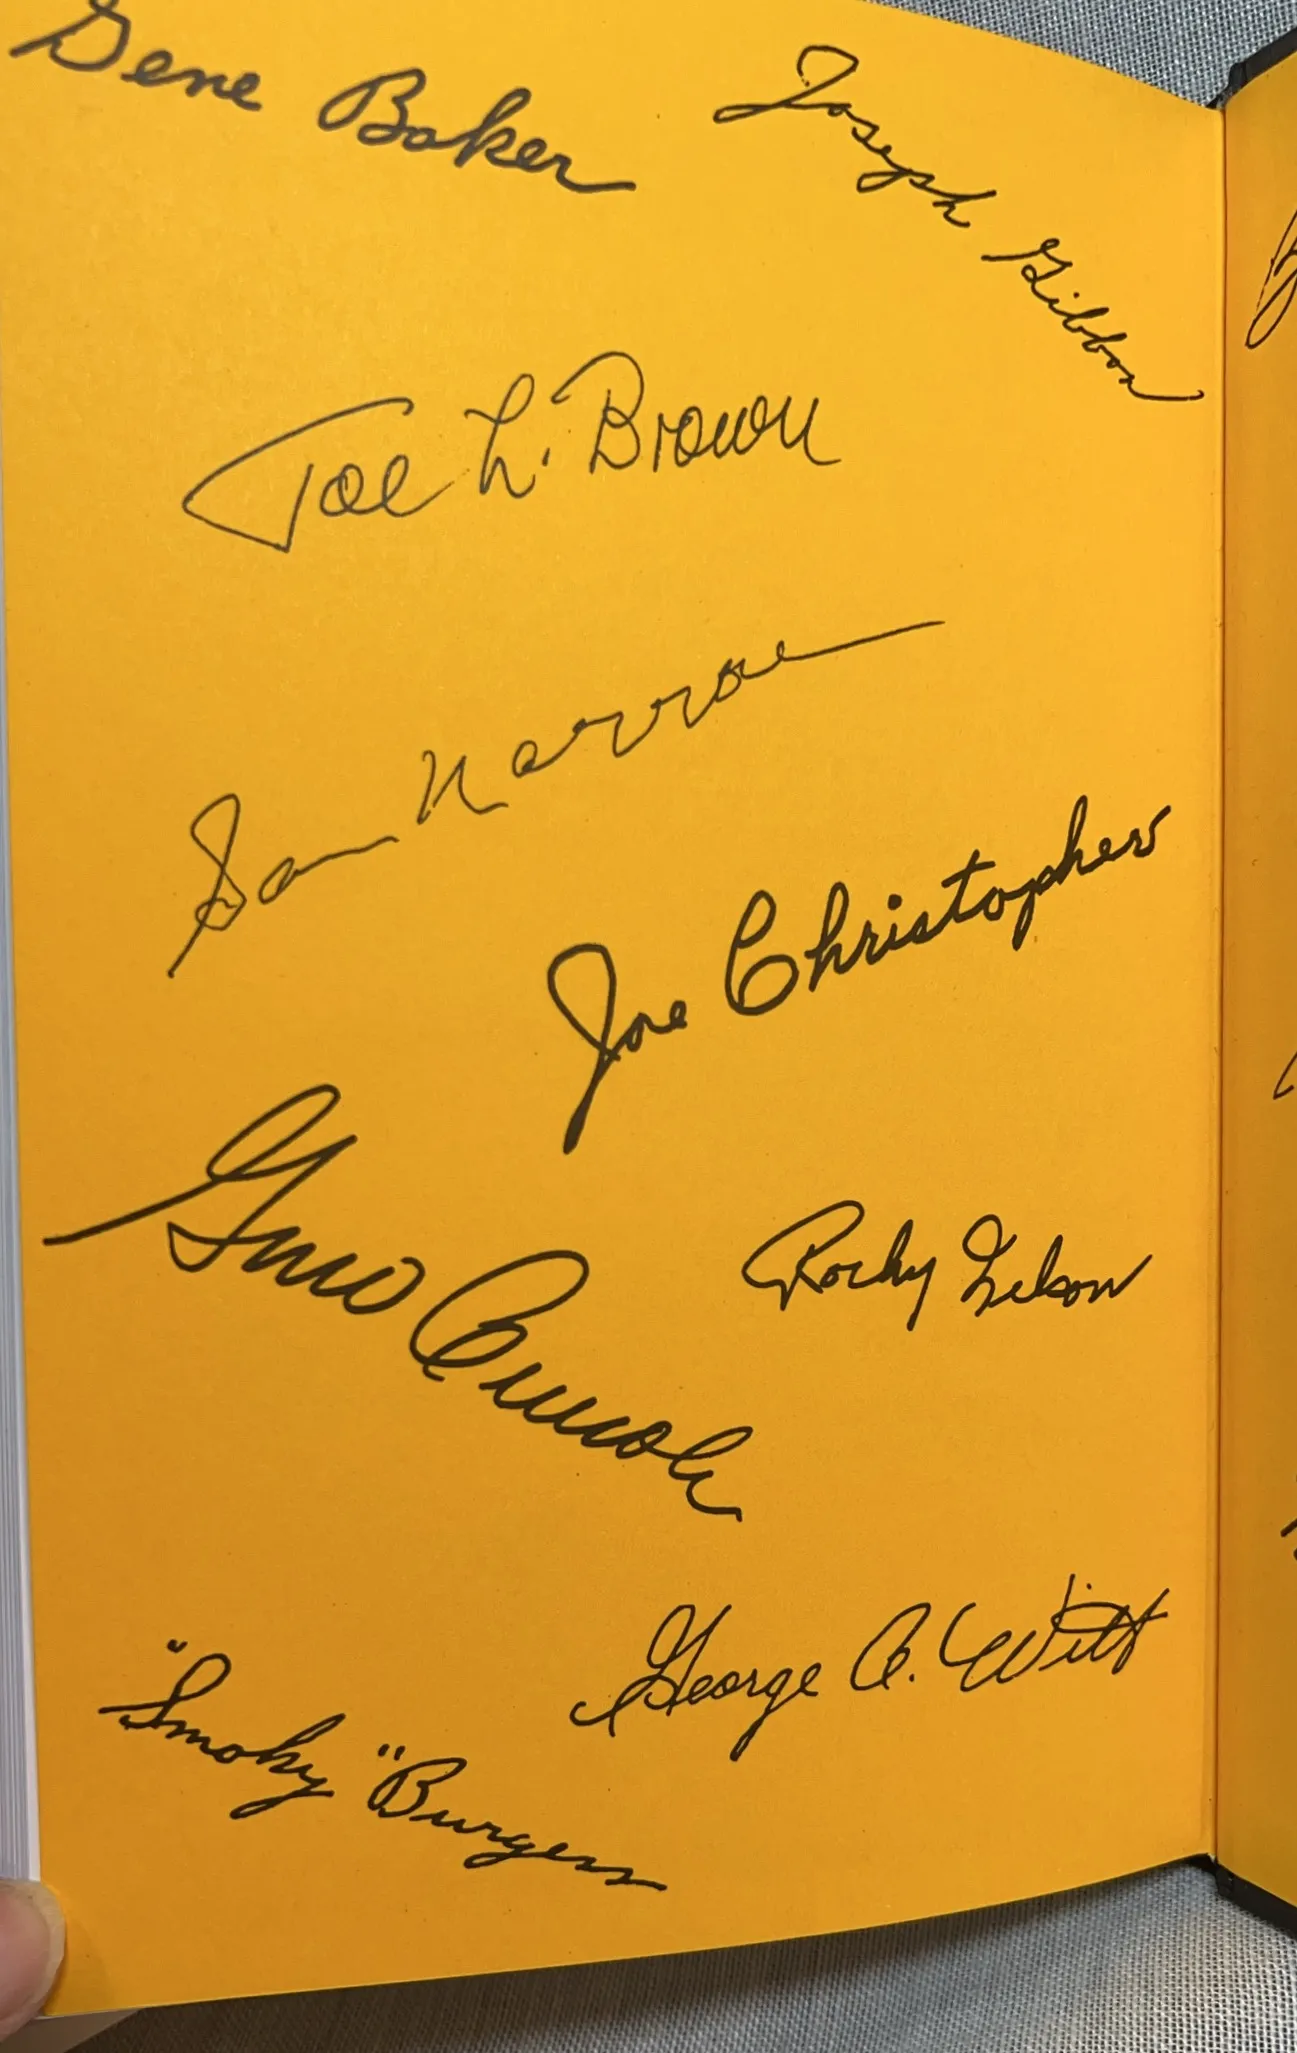 Gene Baker
Joseph Gibbon
Joe L. Brown
Sam Narron
Joe Christopher
Gino Cimoli
Rocky Nelson
George A. Witt
"Smoky" Burgess